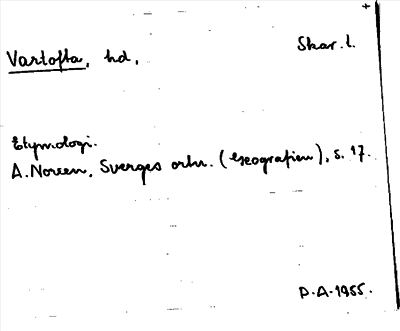 Vartofta, hd, Skar. l.
Etymologi.
A. Noreen, Sverges ortn. (Geografien), s. 17.
P.A. 1955.